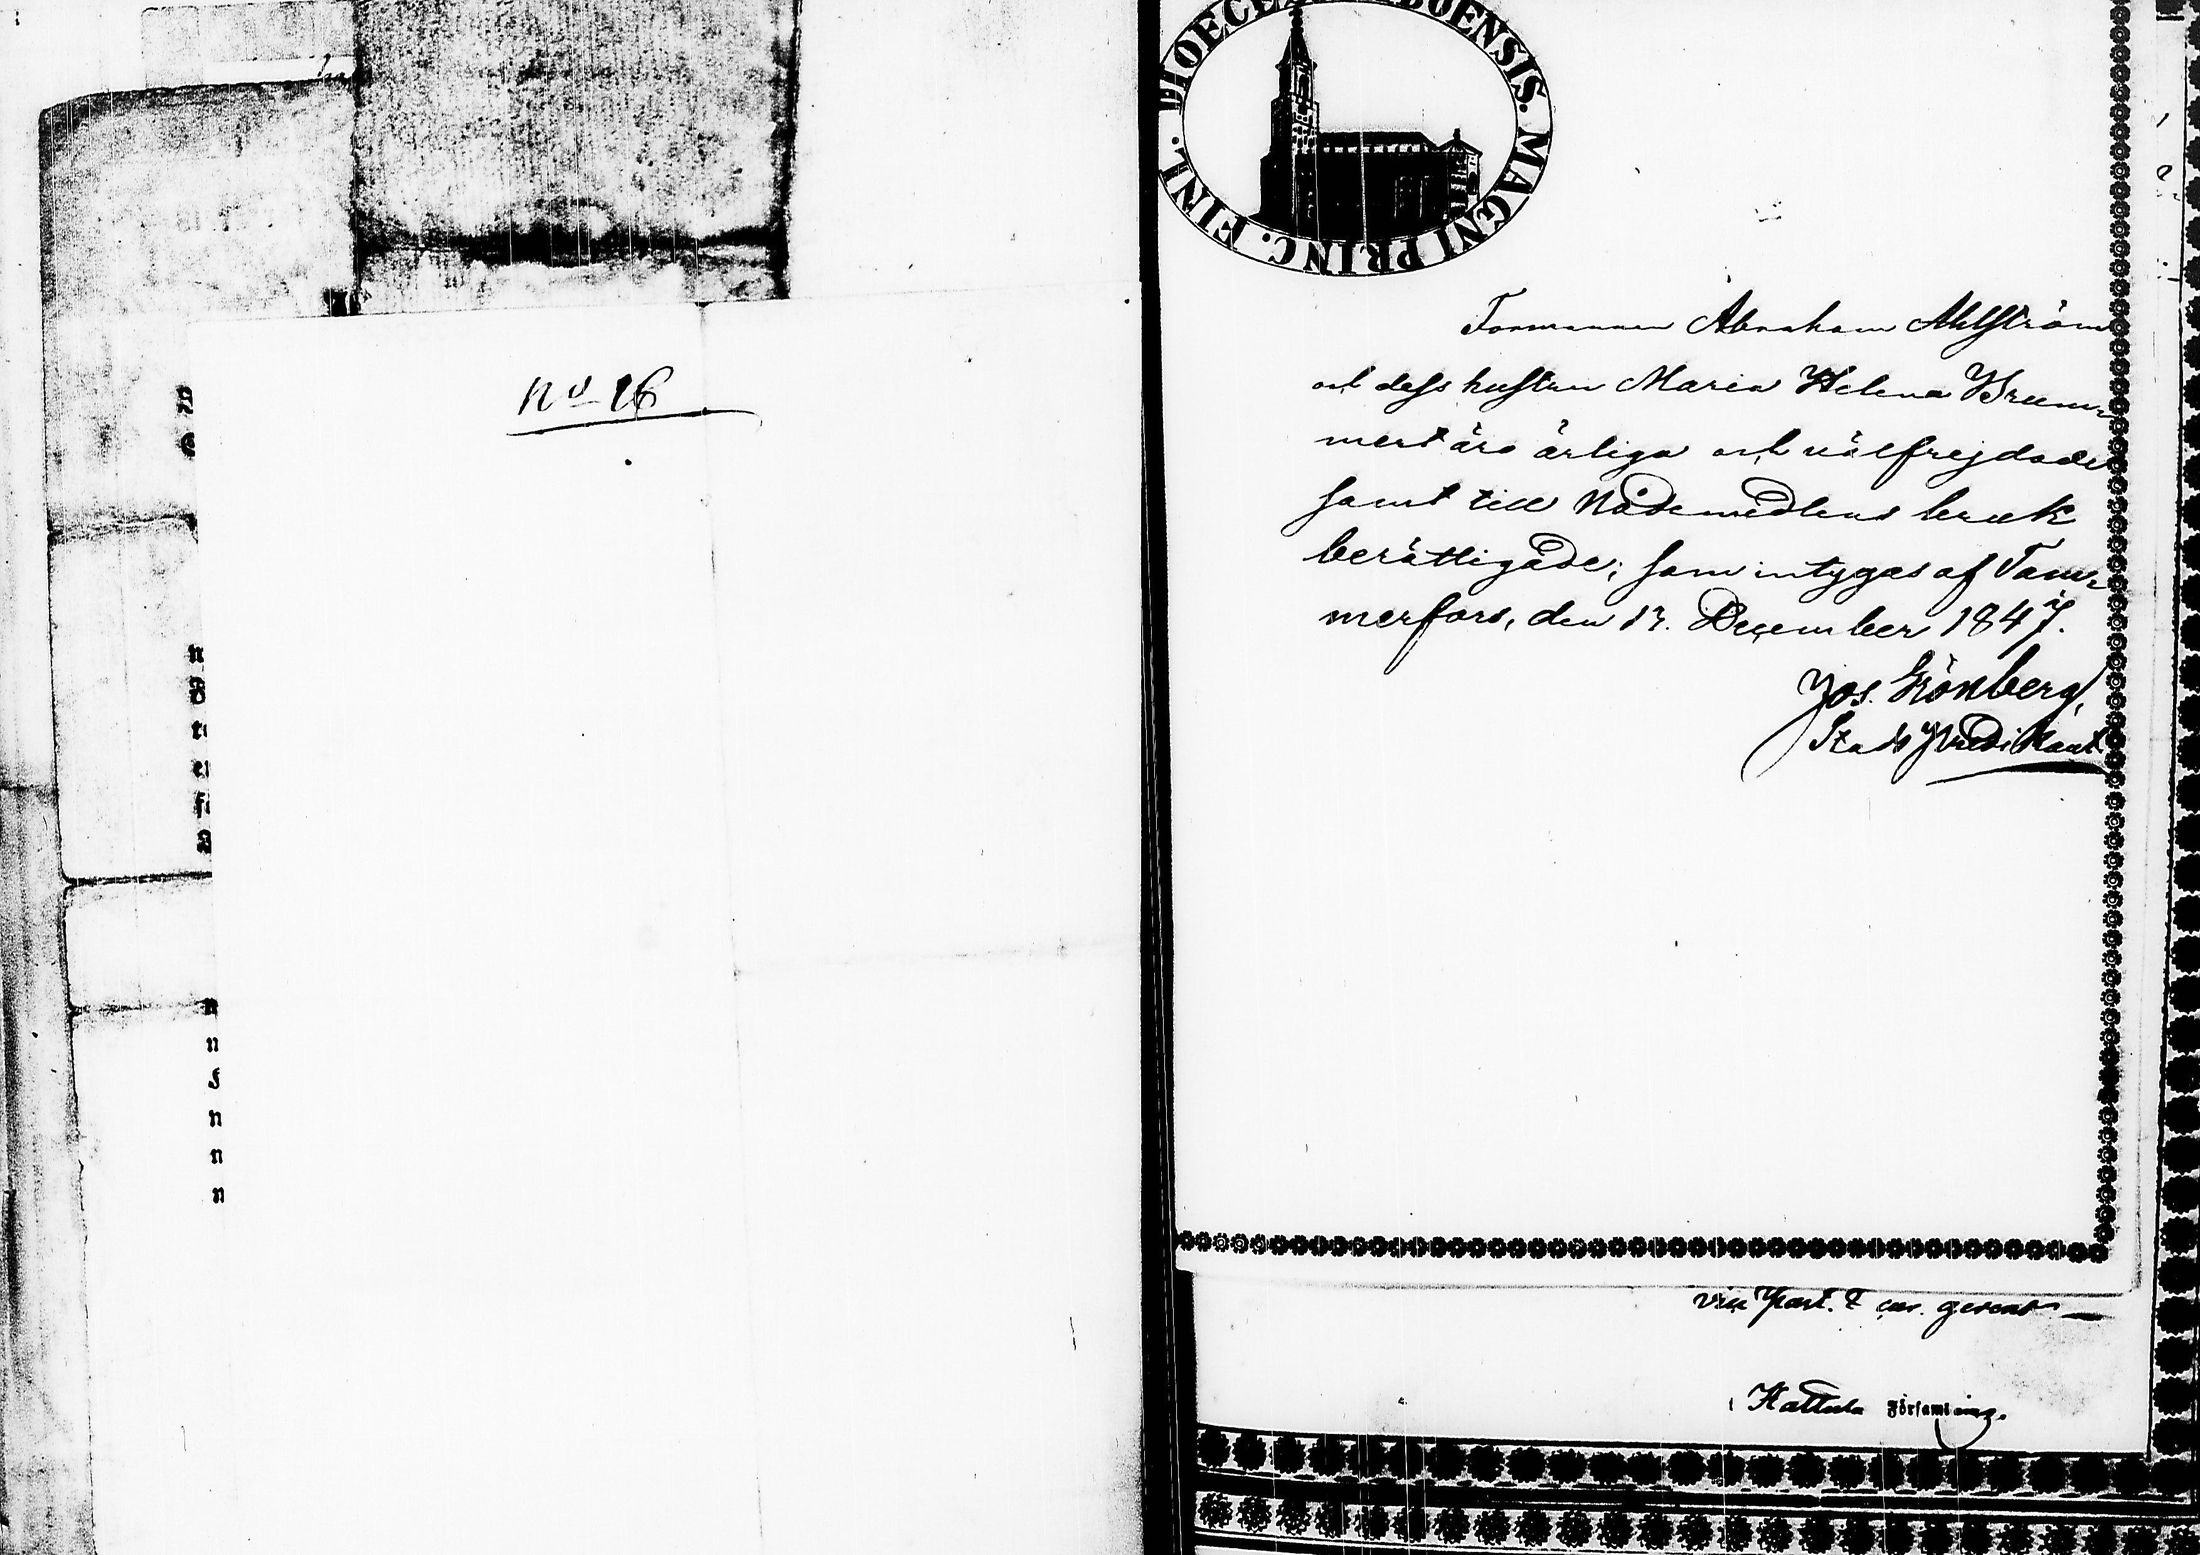 No 26
DIOECES ABOENSIS. MAGNI PRINC. FINL.
Formannen Abraham Ahlström
och dess hustru Maria Helena Brum-
mert äro ärliga och välfrejdade
samt till Nådemedlens bruk
berättigade; som intygas af Tam-
merfors, den 13. December 1847.
Jos. Grönberg,
Stads Predikant
gerent
Hattula Församling.